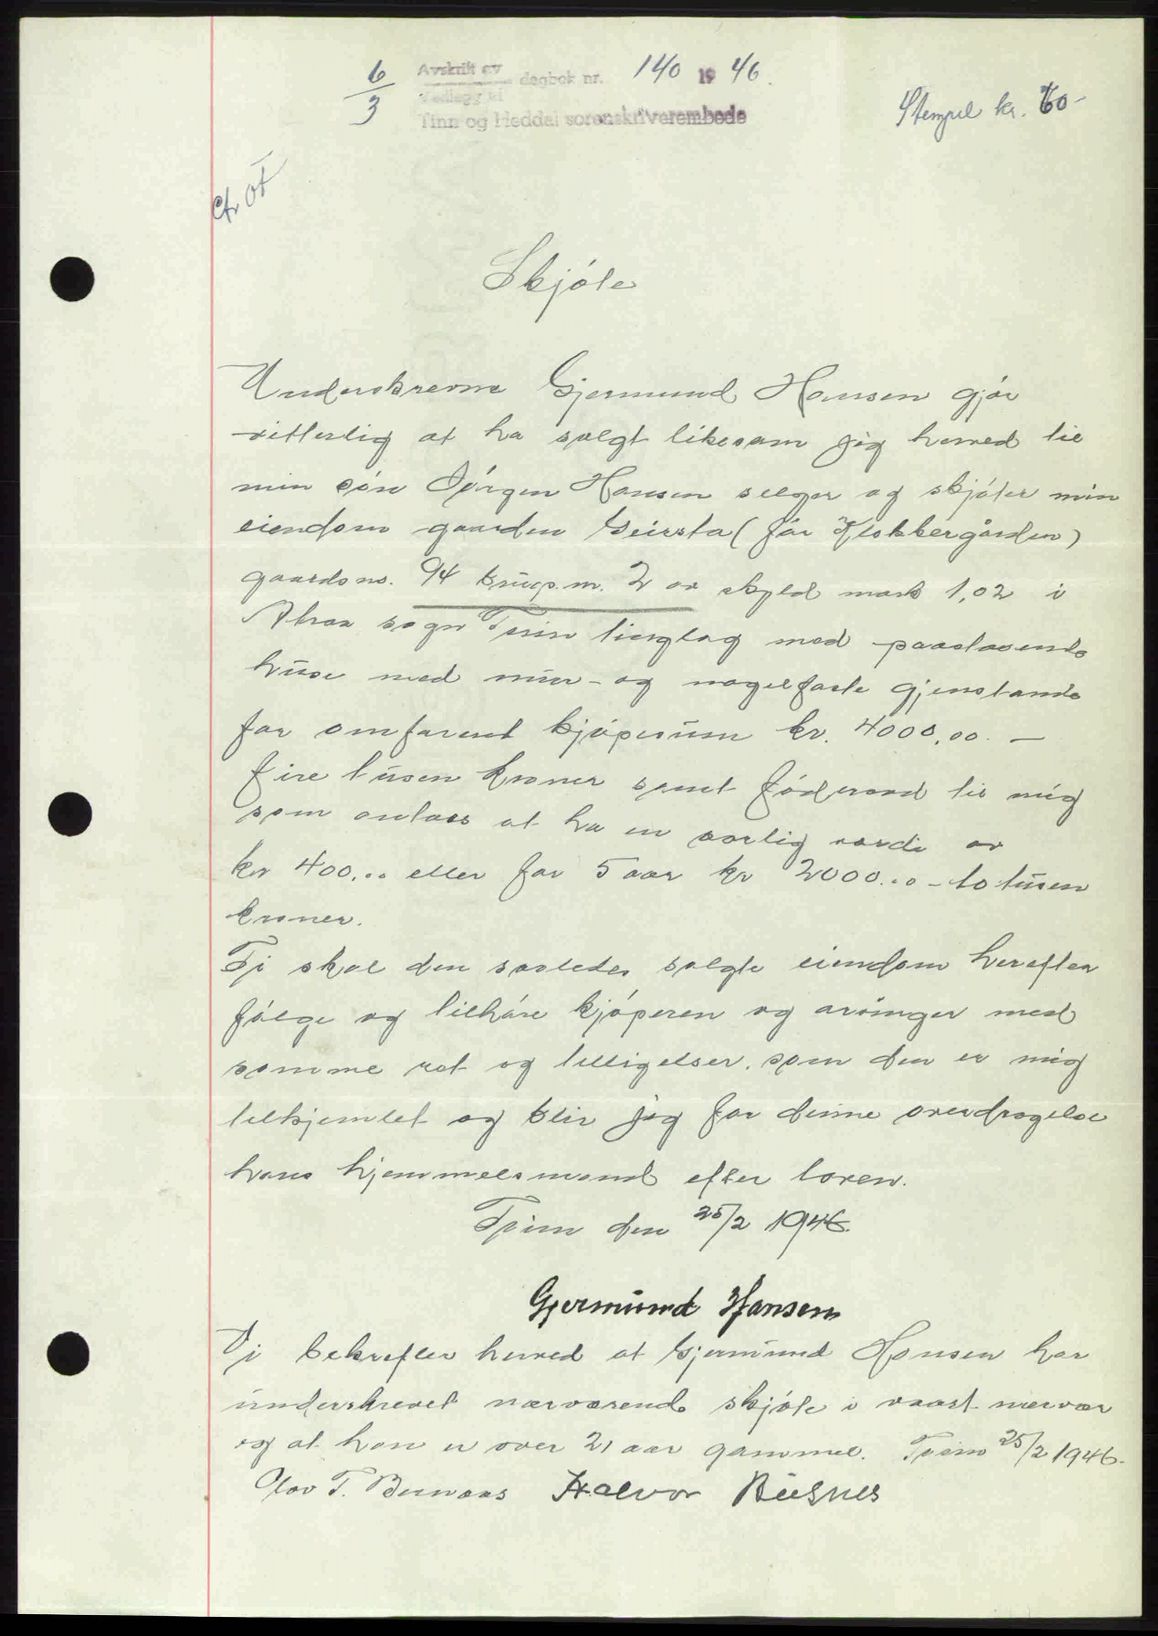 6/3 Avskrift av dagbok nr. 140 1946.
Vedlegg til
Tinn og Heddal sorenskriverembede
Stempel kr. 60-
Skjöte
Underskrevne Gjermund Hansen gjör
vitterlig at ha solgt likesom jeg herved til
min sön Jörgen Hansen selger og skjöter min
eiendom gaarden Geirsta (för Klokkergården)
gaardsno. 94 brugs.nr. 2 av skyld mark 1,02 i
Atraa sogn Tinn tinglag med paastaaende
huse med mur- og nagelfaste gjenstande
for omforent kjöpesum kr. 4000,00. —
fire tusen kroner samt föderaad til mig
som antaes at ha en aarlig værdi av
kr 400,.. eller for 5 aar kr 2000... - to tusen
kroner.
Ti skal den saaledes solgte eiendom herefter
fölge og tilhöre kjöperen og arvinger med
samme ret og tilligelser, som den er mig
tilhjemlet og blir jeg for denne overdragelse
hans hjemmelsmand efter loven.
Tinn den 25/2 1946.
Gjermund Hansen
Vi bekrefter herved at Gjermund Hansen har
underskrevet nærværende skjöte i vaart nærvær
og at han er over 21 aar gammel. Tinn 25/2 1946.
Olav T. Bernaas Halvor Busnes